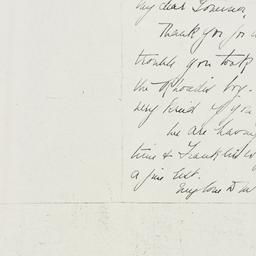 My dear Governor,
Thank you for
trouble you took
the Rhoades boy.
very kind of you
We are having
time & Franklin
a fine rest.